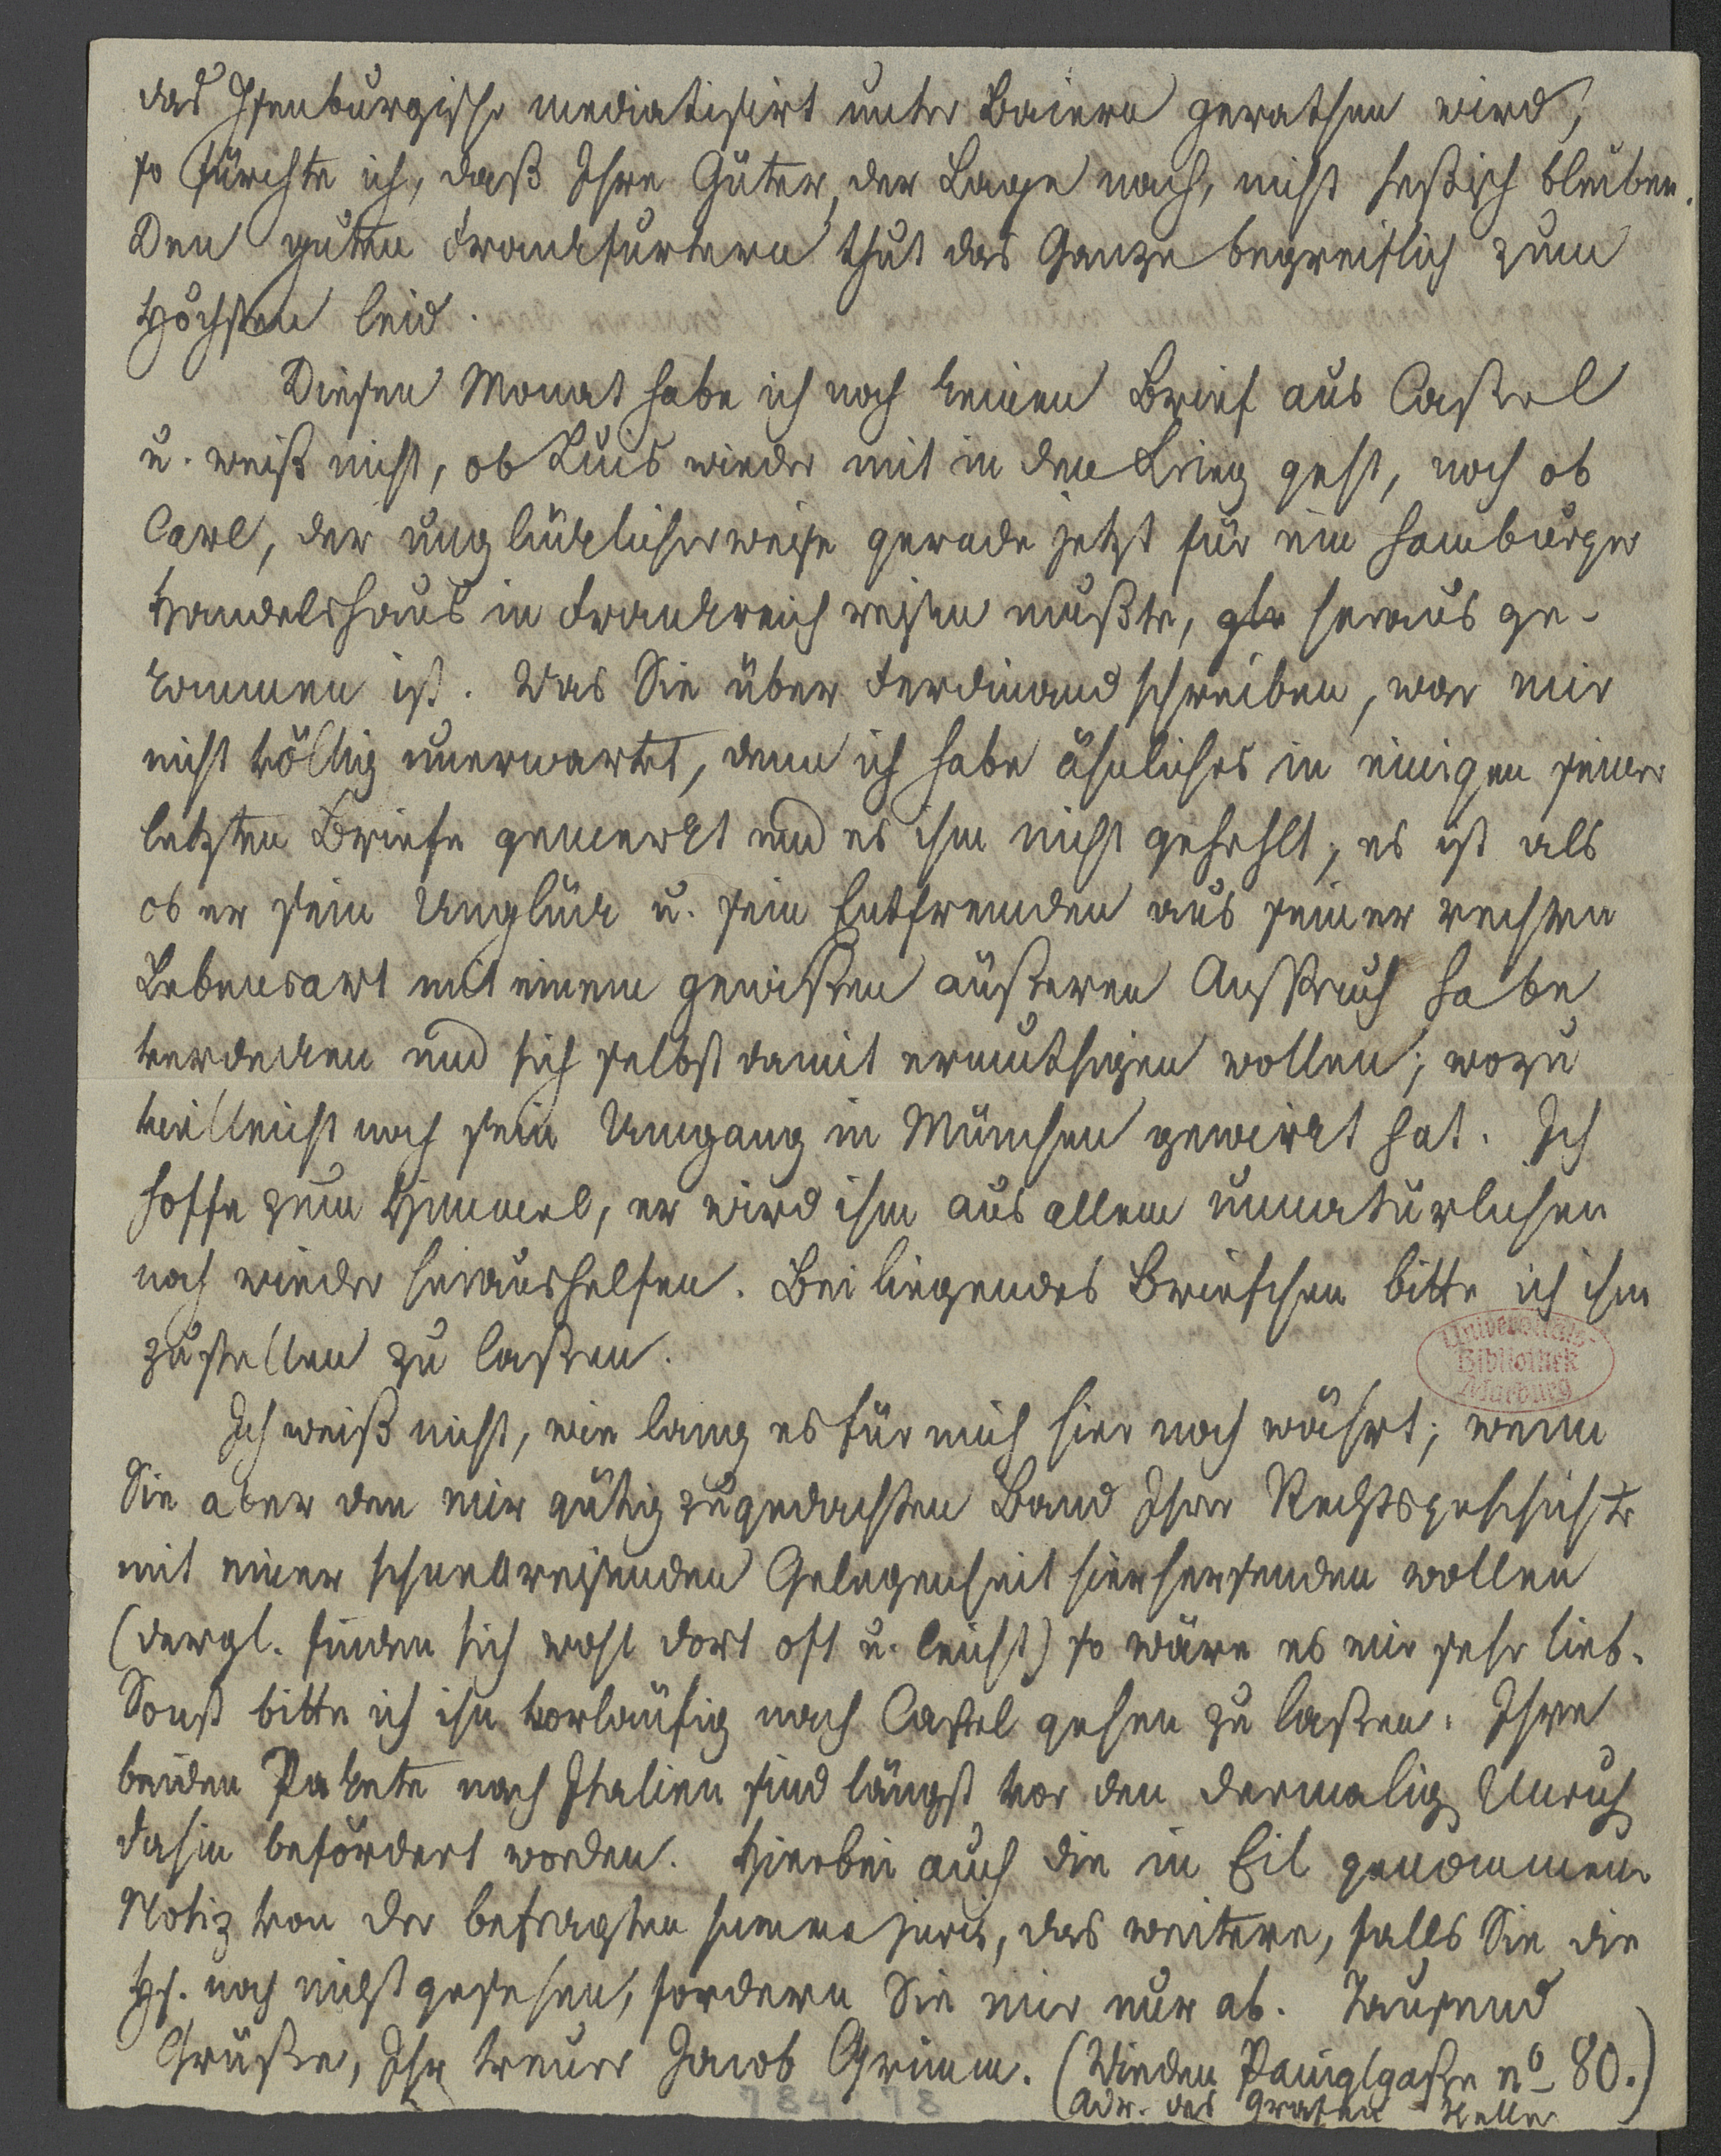 das Isenburgische mediatisirt unter Baiern gerathen wird,
so fürchte ich, daß Ihre Güter, der Lage nach, nicht heßisch bleiben.
Den guten Frankfurtern thut das Ganze begreiflich zum
Höchsten leid.
Diesen Monat habe ich noch keinen Brief aus Caßel
u. weiß nicht, ob Luis wieder mit in den Krieg geht, noch ob
Carl, der unglücklicherweise gerade jetzt für ein hamburger
Handelshaus in Frankreich reisen mußte, heraus ge-
kommen ist. Was Sie über Ferdinand schreiben, war mir
nicht völlig unerwartet, denn ich habe ähnliches in einigen seiner
letzten Briefe gemerkt und es ihm nicht gehehlt, es ist als
ob er sein Unglück u. sein Entfremden aus seiner rechten
Lebensart mit einem gewißen äußeren Anspruch habe
verdecken und sich selbst damit ermuthigen wollen; wozu
vielleicht noch sein Umgang in München gewirkt hat. Ich
hoffe zum Himmel, er wird ihm aus allem unnatürlichen
noch wieder heraushelfen. Beiliegendes Briefchen bitte ich ihm
zustellen zu laßen.
Universitäts-
Bibliothek
Marburg
Ich weiß nicht, wie lang es für mich hier noch währt; wenn
Sie aber den mir gütig zugedachten Band Ihrer Rechtsgeschichte
mit einer schnellreisenden Gelegenheit hierhersenden wollen
(dergl. finden sich wohl dort oft u. leicht) so wäre es mir sehr lieb.
Sonst bitte ich ihn vorläufig nach Caßel gehen zu laßen. Ihre
beiden Pakete nach Italien sind längst vor den dermalig Unruh
dahin befördert worden. Hierbei auch die in Eil genommene
Notiz von der befragten summa juris, das weitere, falls Sie die
Hs. noch nicht gesehen, fordern Sie mir nur ab. Tausend
Grüße, Ihr treuer Jacob Grimm. (Wieden Paniglgaße no 80.)
(Adr. des Grafen Keller
784 78